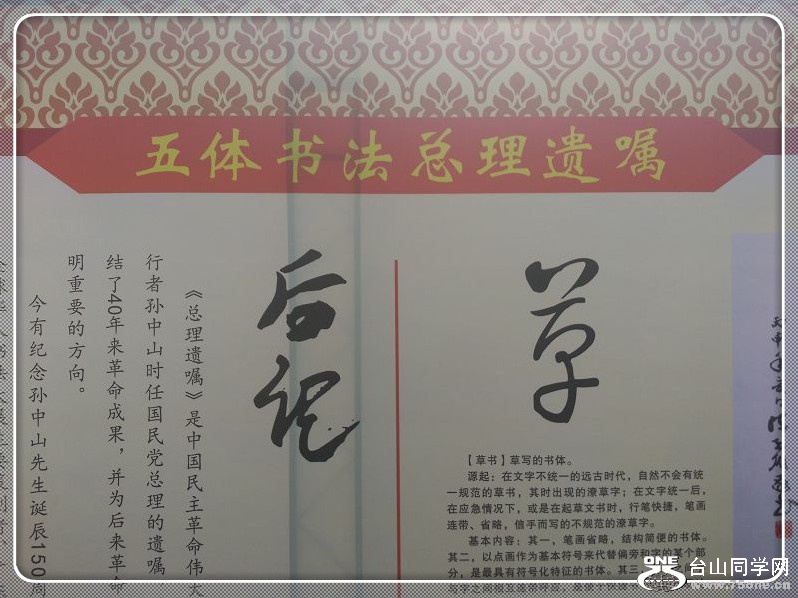 五体书法总理遗嘱
草
【草书】草写的书体。
源起:在文字不统一的远古时代,自然不会有统
一规范的草书,其时出现的潦草字;在文字统一后,
在应急情况下,或是在起草文书时,行笔快捷,笔画
连带、省略,信手而写的不规范的潦草字。
基本内容:其一,笔画省略,结构简便的书体。
其二,以点画作为基本符号来代替偏旁和字的某个部
分,是最具有符号化特征的书体。其三
与字之间相互连带呼应,是便于快捷书
后记
《总理遗嘱》是中国民主革命伟大
行者孙中山时任国民党总理的遗嘱
结了40年来革命成果,并为后来革命
明重要的方向。
今有纪念孙中山先生诞辰150周
ONE
台山同学网
www.75one.cn